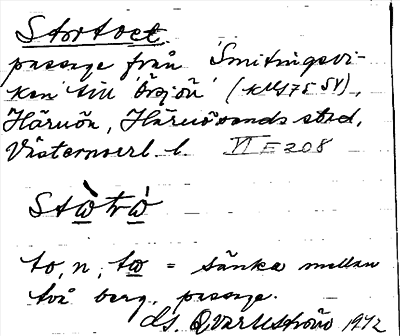 Stortoet
passage från Smitingsvi-
ken till Örsjön (KM 175 SV),
Härnön, Härnösands stad,
Västernorrl. l. VI E 208
Stὼtrὼ
to, n, tω = sänka mellan
två berg, passage.
Qvarnström 1972